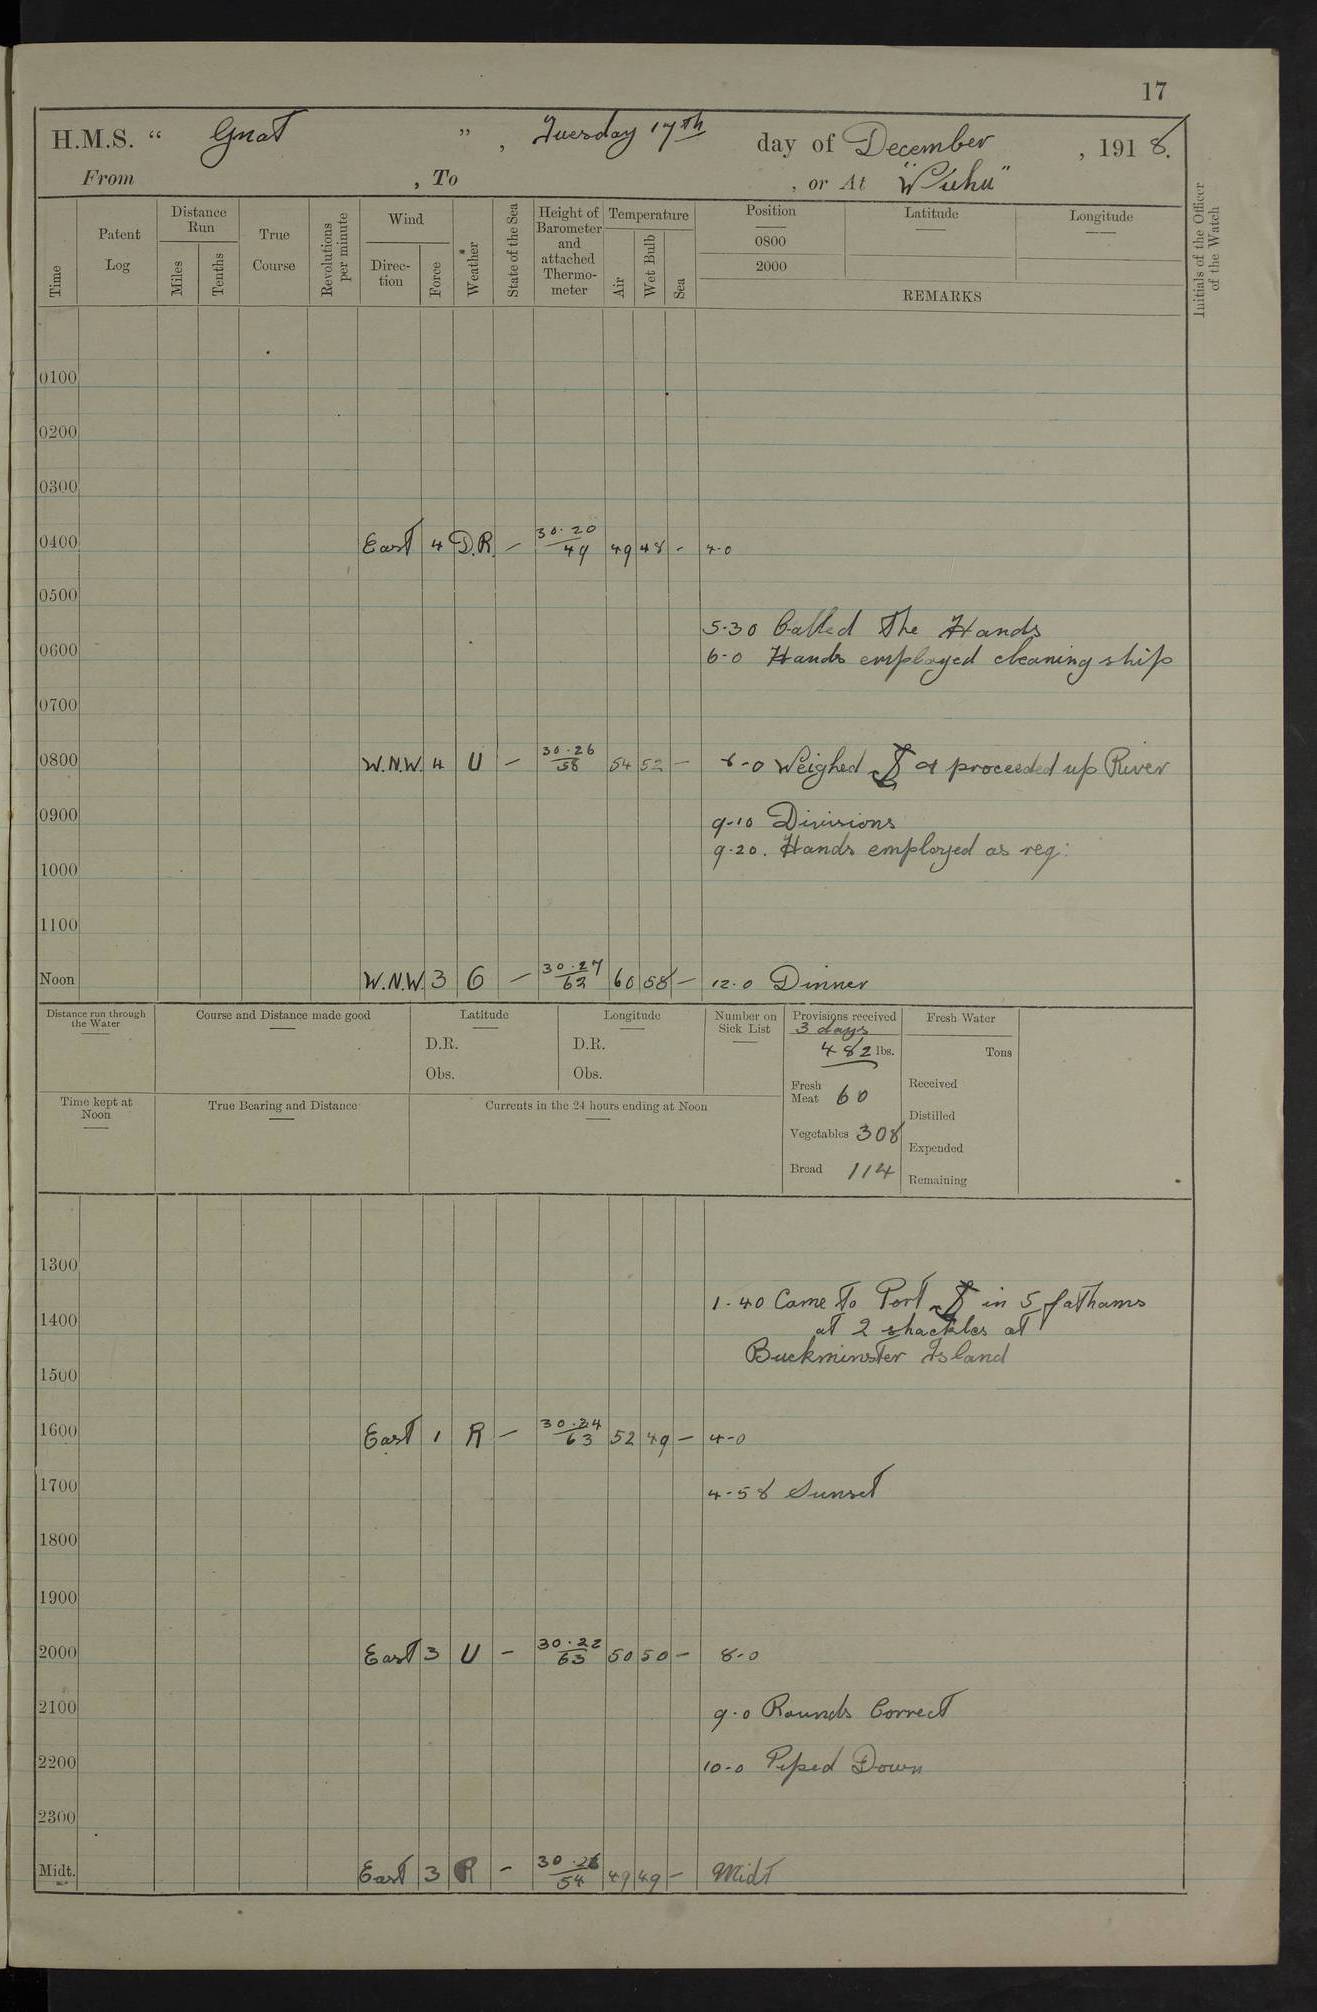 17
H.M.S. “ Gnat ” , Tuesday 17th day of December , 1918.
From , To , or At "Wuhu"
Time
Patent Log
Distance Run
Miles
Tenths
True Course
Revolutions per minute
Wind
Direction
Force
Weather
State of the Sea
Height of Barometer and attached Thermo- meter
Temperature
Air
Wet Bulb
Sea
Position
0800
2000
Latitude
Longitude
REMARKS
Initials of the Officer of the Watch
0100
0200
0300
0400 East 4 D.R. — 30.20 49 49 48 - 4-0
0500
5-30 Called The Hands
0600
6-0 Hands employed cleaning ship
0700
0800 W.N.W. 4 U — 30.26 58 54 52 — 8-0 Weighed ⚓ & proceeded up River
0900
9-10 Divisions
9.20. Hands employed as req:
1000
1100
Noon W.N.W. 3 C — 30.27 62 60 58 — 12.0 Dinner
Distance run through the Water
Course and Distance made good
Latitude
D.R.
Obs.
Longitude
D.R.
Obs.
Number on Sick List
Provisions received
3 days
482 lbs.
Fresh Meat 60
Vegetables 308
Bread 114
Fresh Water
Tons
Received
Distilled
Expended
Remaining
Time kept at Noon
True Bearing and Distance
Currents in the 24 hours ending at Noon
1300
1-40 Came To Port ⚓ in 5 fathams
1400
at 2 shackles at
Buckminster Island
1500
1600 East 1 R — 30.34 63 52 49 — 4-0
1700
4-58 Sunset
1800
1900
2000 East 3 U — 30.22 63 50 50 — 8-0
2100
9.0 Rounds Correct
2200
10-0 Piped Down
2300
Midt. East 3 R — 30.26 54 49 49 — Midt